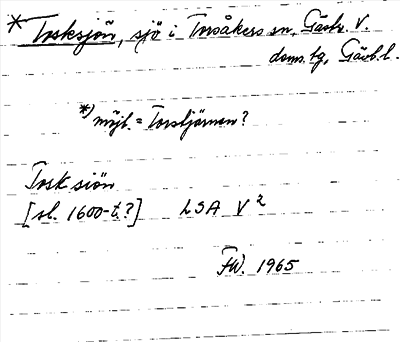 * Torsksjön, sjö i Torsåkers sn, Gästr. V.
doms.tg, Gävleb. l.
*) möjl. = Torstjärnen?
Torsk siön
[sl. 1600-t.?] LSA V 2
FW. 1965